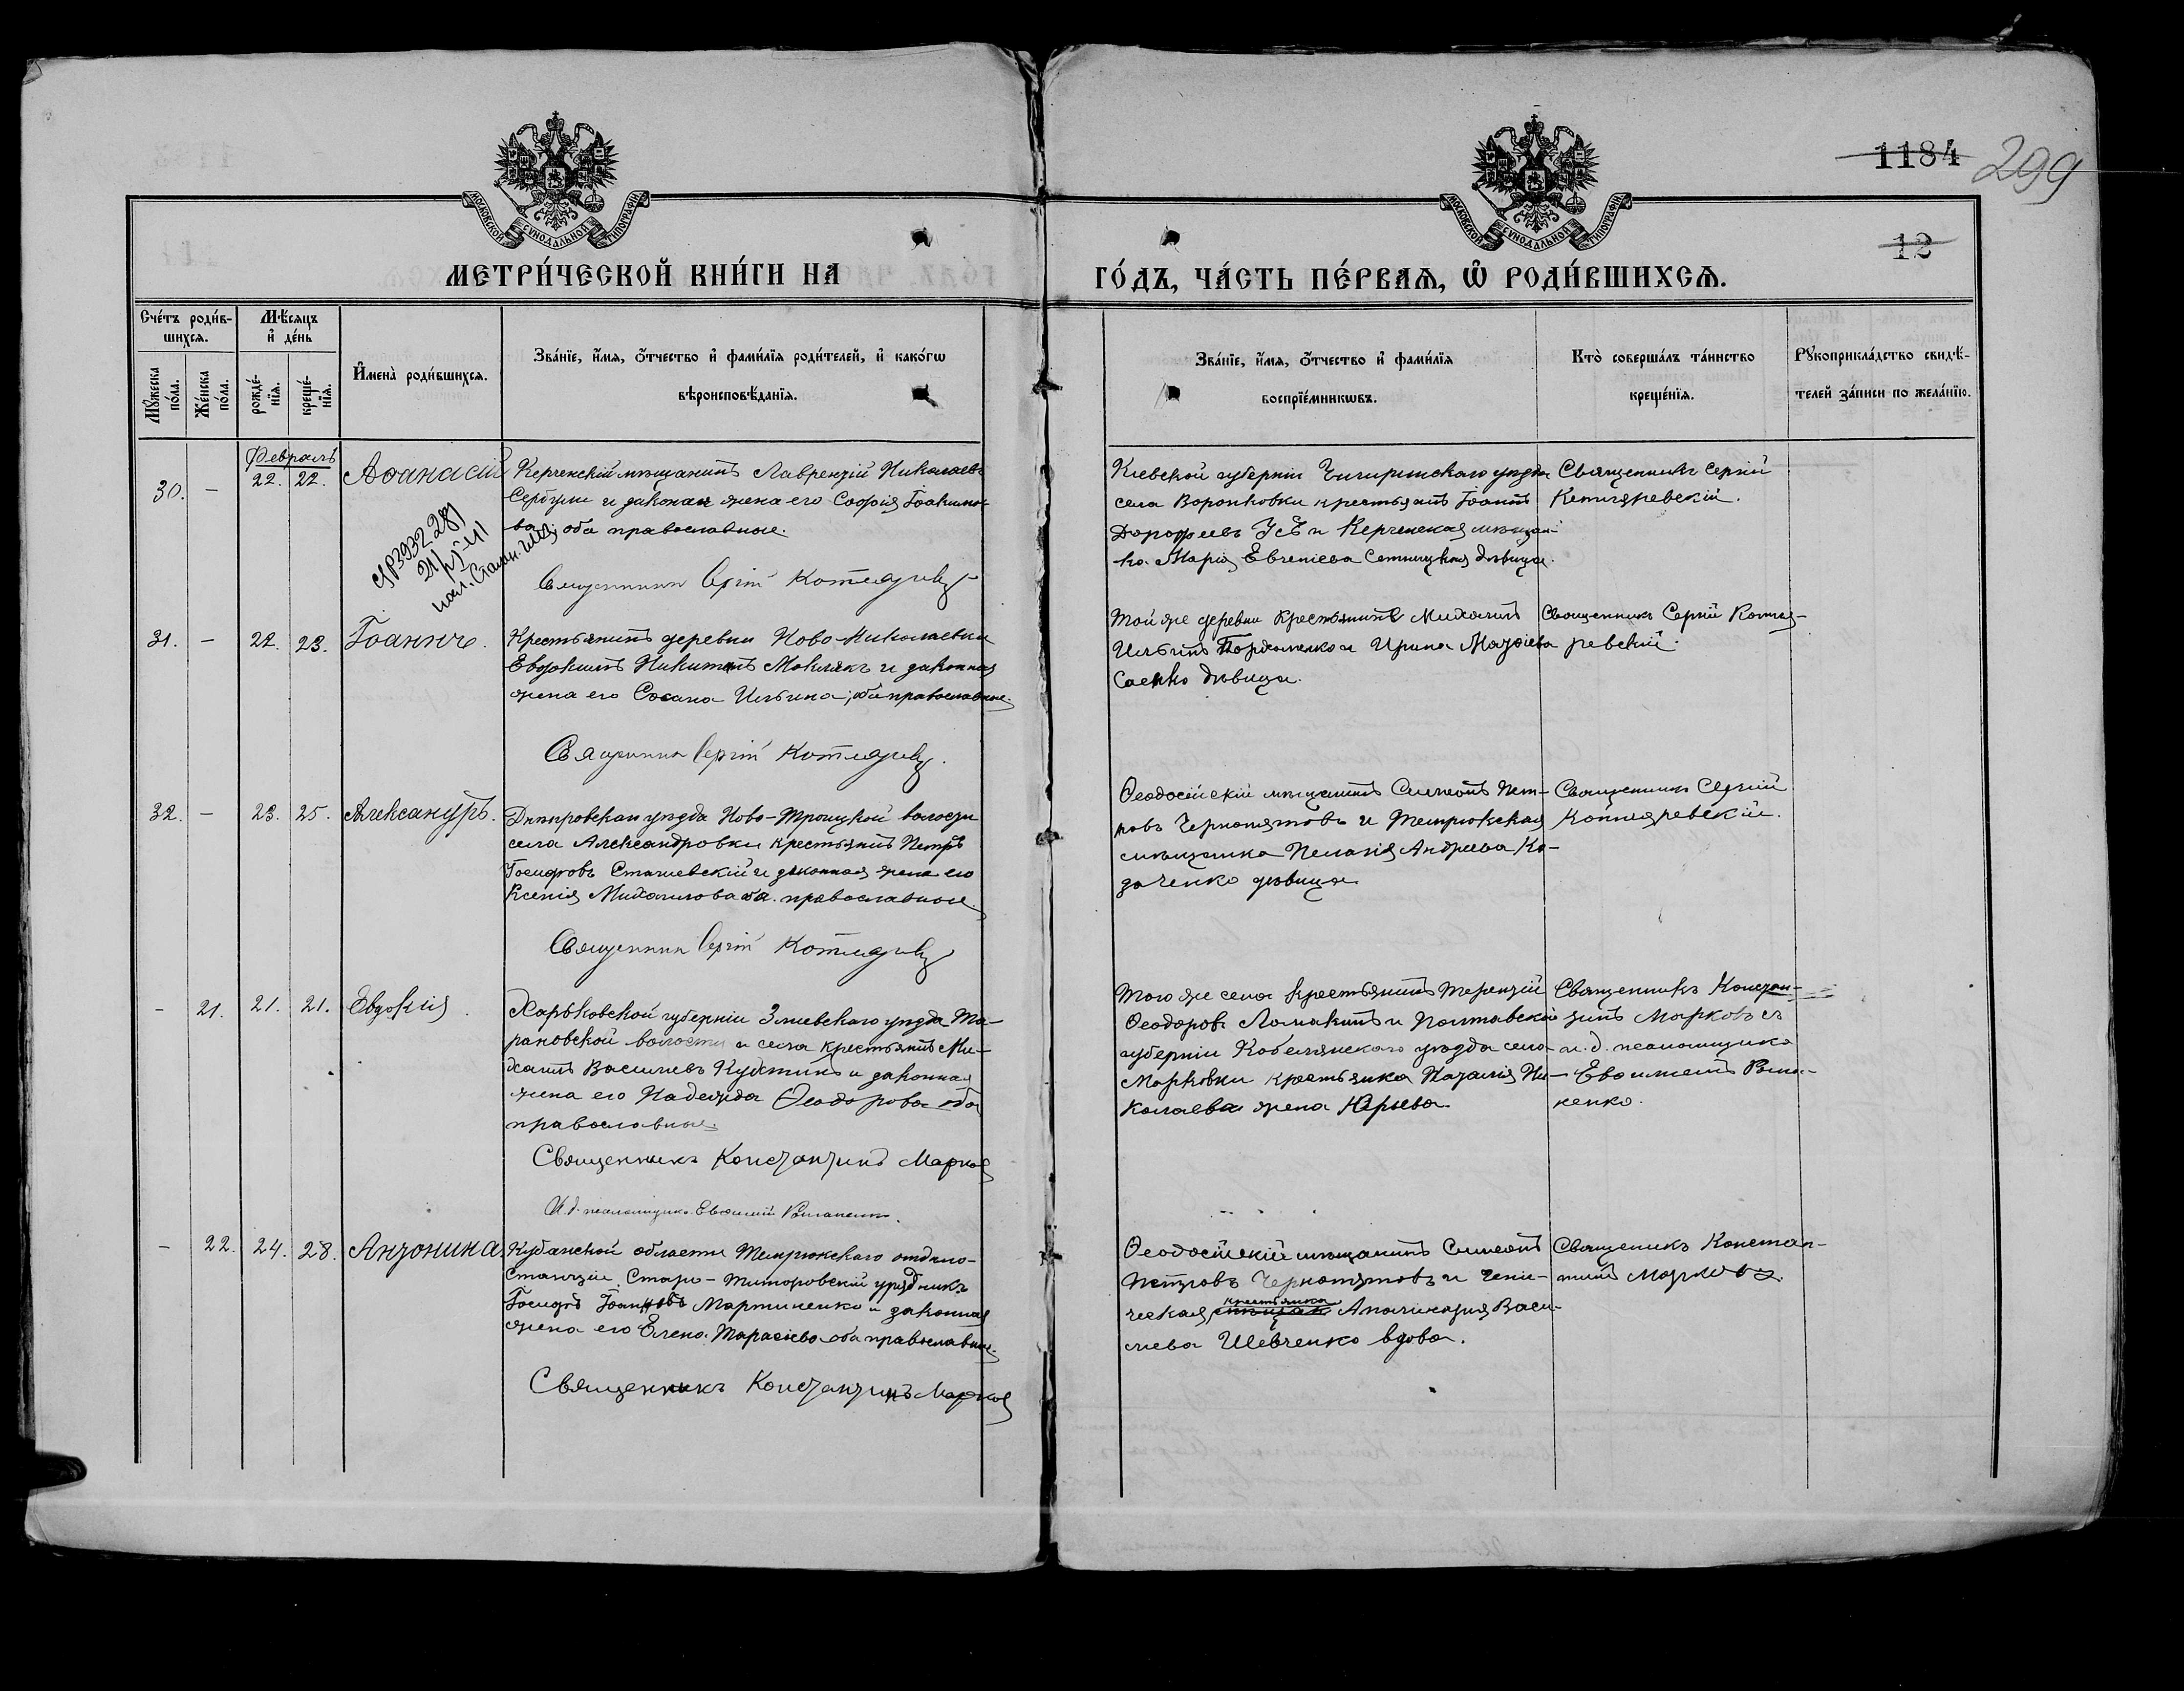 1184 299
12
МОСКОВСКОЙ СѴНОДАЛЬНОЙ ТИПОГРАФІИ
МОСКОВСКОЙ СѴНОДАЛЬНОЙ ТИПОГРАФІИ
МЕТРИ́ЧЕСКОЙ КНИ́ГИ НА
ГО́ДЪ, ЧА́СТЬ ПЕ́РВАѦ, Ѿ РОДИ́ВШИХСѦ.
Сче́тъ роди́в-
шихсѧ.
Мꙋ́жеска по́ла.
Же́нска по́ла.
Мѣ́сѧцъ и҆ де́нь
рожде́-
нїѧ.
креще́-
нїѧ.
И҆мена̀ роди́вшихсѧ.
Зва́нїе, и҆́мѧ, ѻ҆́тчество и҆ фами́лїѧ роди́телей, и҆ како́гѡ
вѣроисповѣ́данїѧ.
Зва́нїе, и҆́мѧ, ѻ҆́тчество и҆ фами́лїѧ
воспрїе́мникѡвъ.
Кто̀ соверша́лъ та́инство
креще́нїѧ.
Рꙋкоприкла́дство свидѣ́-
телей за́писи по жела́нїю.
Февраль
30. - 22. 22. Аѳанасій
Керченскій мѣщанинъ Лаврентій Николаевъ
Сербули и законая жена его Софія Іоакимо-
ва; оба православные.
Священникъ Сергій Котляревс
Кіевской губерніи Чигиринскаго уѣзда
села Воронковки крестьянъ Іоаннъ
Дорофеевъ Усъ и Керченская мѣщан-
ка Марія Евгеніева Сетницкая дѣвица.
Священникъ Сергій
Котляревскій.
31. - 22. 23. Іоаннъ.
Крестьянинъ деревни Ново-Николаевки
Евдокимъ Никитинъ Моклякъ и законная
жена его Сосана Ильина; оба православные.
Священникъ Сергій Котляревс
Той же деревни крестьянинъ Михаилъ
Ильинъ Пархоменко и Ирина Матѳіева
Саенко дѣвица.
Священникъ Сергій Котля-
ревскій.
32. - 23. 25. Александръ.
Днѣпровскаго уѣзда Ново-Троицкой волости
села Александровки крестьянинъ Петръ
Іосифовъ Сташевскій и законная жена его
Ксенія Михаилова оба православные
Священникъ Сергій Котляревс
Ѳеодосійскій мѣщанинъ Симеонъ Пет-
ровъ Чернопятовъ и Темрюкская
мѣщанка Пелагія Андреева Ко-
заченко дѣвица
Священникъ Сергій
Котляревскій.
- 21. 21. 21. Евдокія.
Харьковской губерніи Зміевскаго уѣзда Та-
рановской волости и села крестьянъ Ми-
хаилъ Василіевъ Кустинъ и законная
жена его Надежда Ѳеодорова оба
православные.
Священникъ Константинъ Марковъ
И.д. псаломщика Евѳимій Романенко.
Того же села крестьянинъ Терентій
Ѳеодоровъ Ломакинъ и Полтавской
губерніи Кобелянскаго уѣзда села
Марковки крестьянка Наталія Ни-
колаева жена Юрьева
Священникъ Констан-
тинъ Марковъ съ
и.д. псаломщика
Евѳиміемъ Рома-
ненко.
- 22. 24. 28. Антонина
Кубанской области Темрюкскаго отдѣла
Станціи Старо-Титоровскій урядникъ
Іосифъ Іоанновъ Мартиненко и законная
жена его Елена Тарасіева оба православные.
Священникъ Константинъ Марковъ
Ѳеодосійскій мѣщанинъ Симеонъ
Петровъ Чернопятовъ и Гени-
ческая крестьянка Аполинарія Васи-
лиева Шевченко вдова.
Священикъ Констан-
тинъ Марковъ.